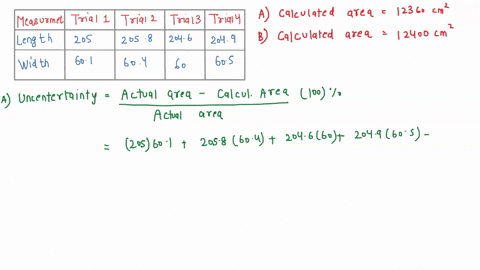 Measurmet Trial 1 Trial 2 Trial 3 Trial 4
Length 205 205.8 204.6 204.9
Width 60.1 60.4 60 60.5
A) Calculated area = 12360 cm²
B) Calculated area = 12400 cm²
A) Uncentertainty = Actual area - Calcul. Area (100) %
Actual area
= (205) 60.1 + 205.8 (60.4) + 204.6 (60) + 204.9 (60.5) -